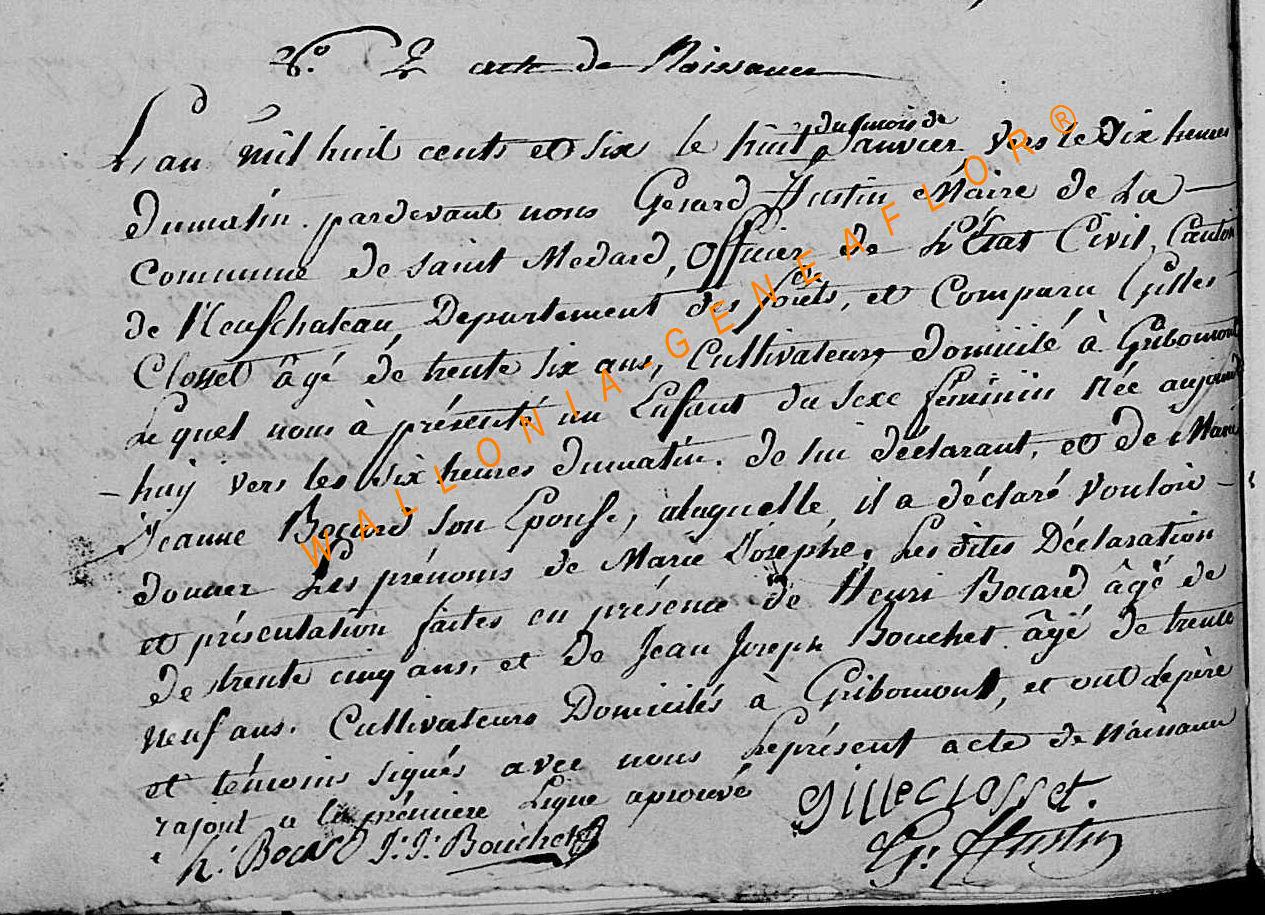 acte de Naissance
L'an mil huit cents et six le huit du mois de Janvier vers le dix heures
du matin. pardevant nous Gérard Hustin Maire de La
Commune de saint Medard, Officier de L'État Civil, Canton
de Neufchateau Departement des forêts, et Comparu Gilles
Closset âgé de trente six ans, Cultivateur, domicilé à Gribomont
Lequel nous à présenté un Enfant du sexe féminin Née aujourd
huy vers les six heures du matin. de lui déclarant, et de Marie
Jeanne Bocard son Epouse, alaquelle, il a déclaré vouloir
donner Les prénoms de Marie Josephe, Les dites Déclaration
et présentation faites en présence de Henri Bocard âgé de
de trente cinq ans, et de Jean Joseph Bouchet âgé de trente
neuf ans. Cultivateurs Domicilés à Gribomont, et ont de père
et témoins signés avec nous Le présent acte de Naissance
rajout a la première Ligne aprouvé
Gille Closset.
h. Bocard J. J. Bouchet
G. Hustin
WALLONIA-GENEAFLOR®